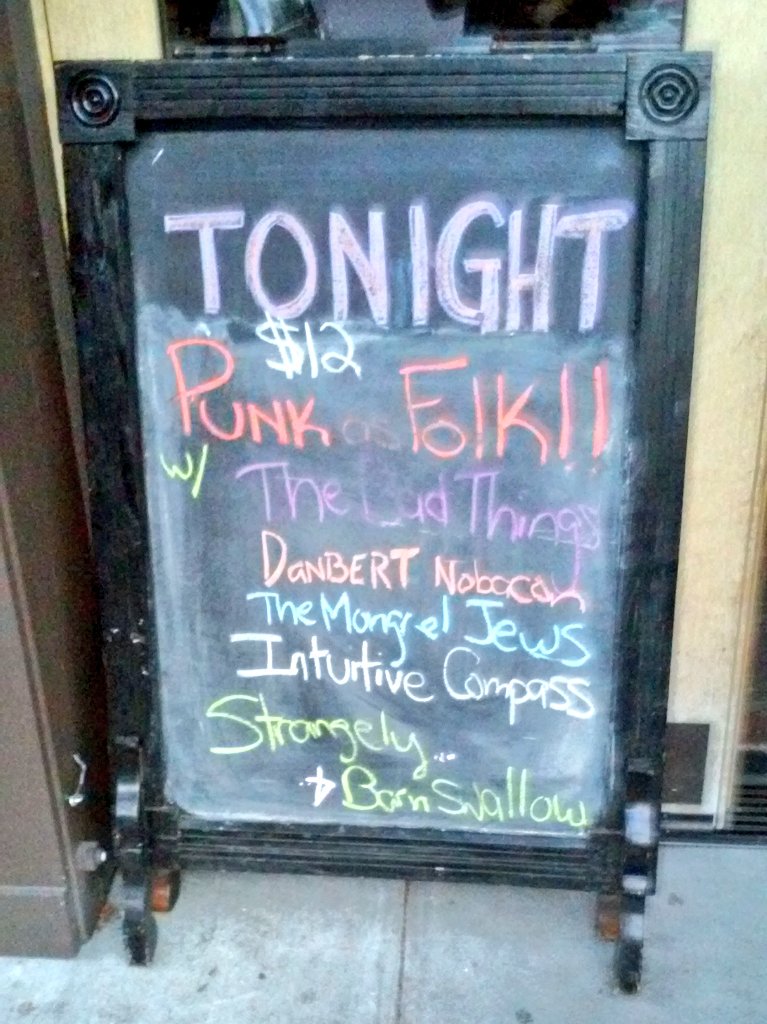 TONIGHT
$12
PUNK as Folk!!
w/ The Lud Things
DANBERT Nobacon
The Mongrel Jews
Intuitive Compass
Strangely...
+ Barn Swallow